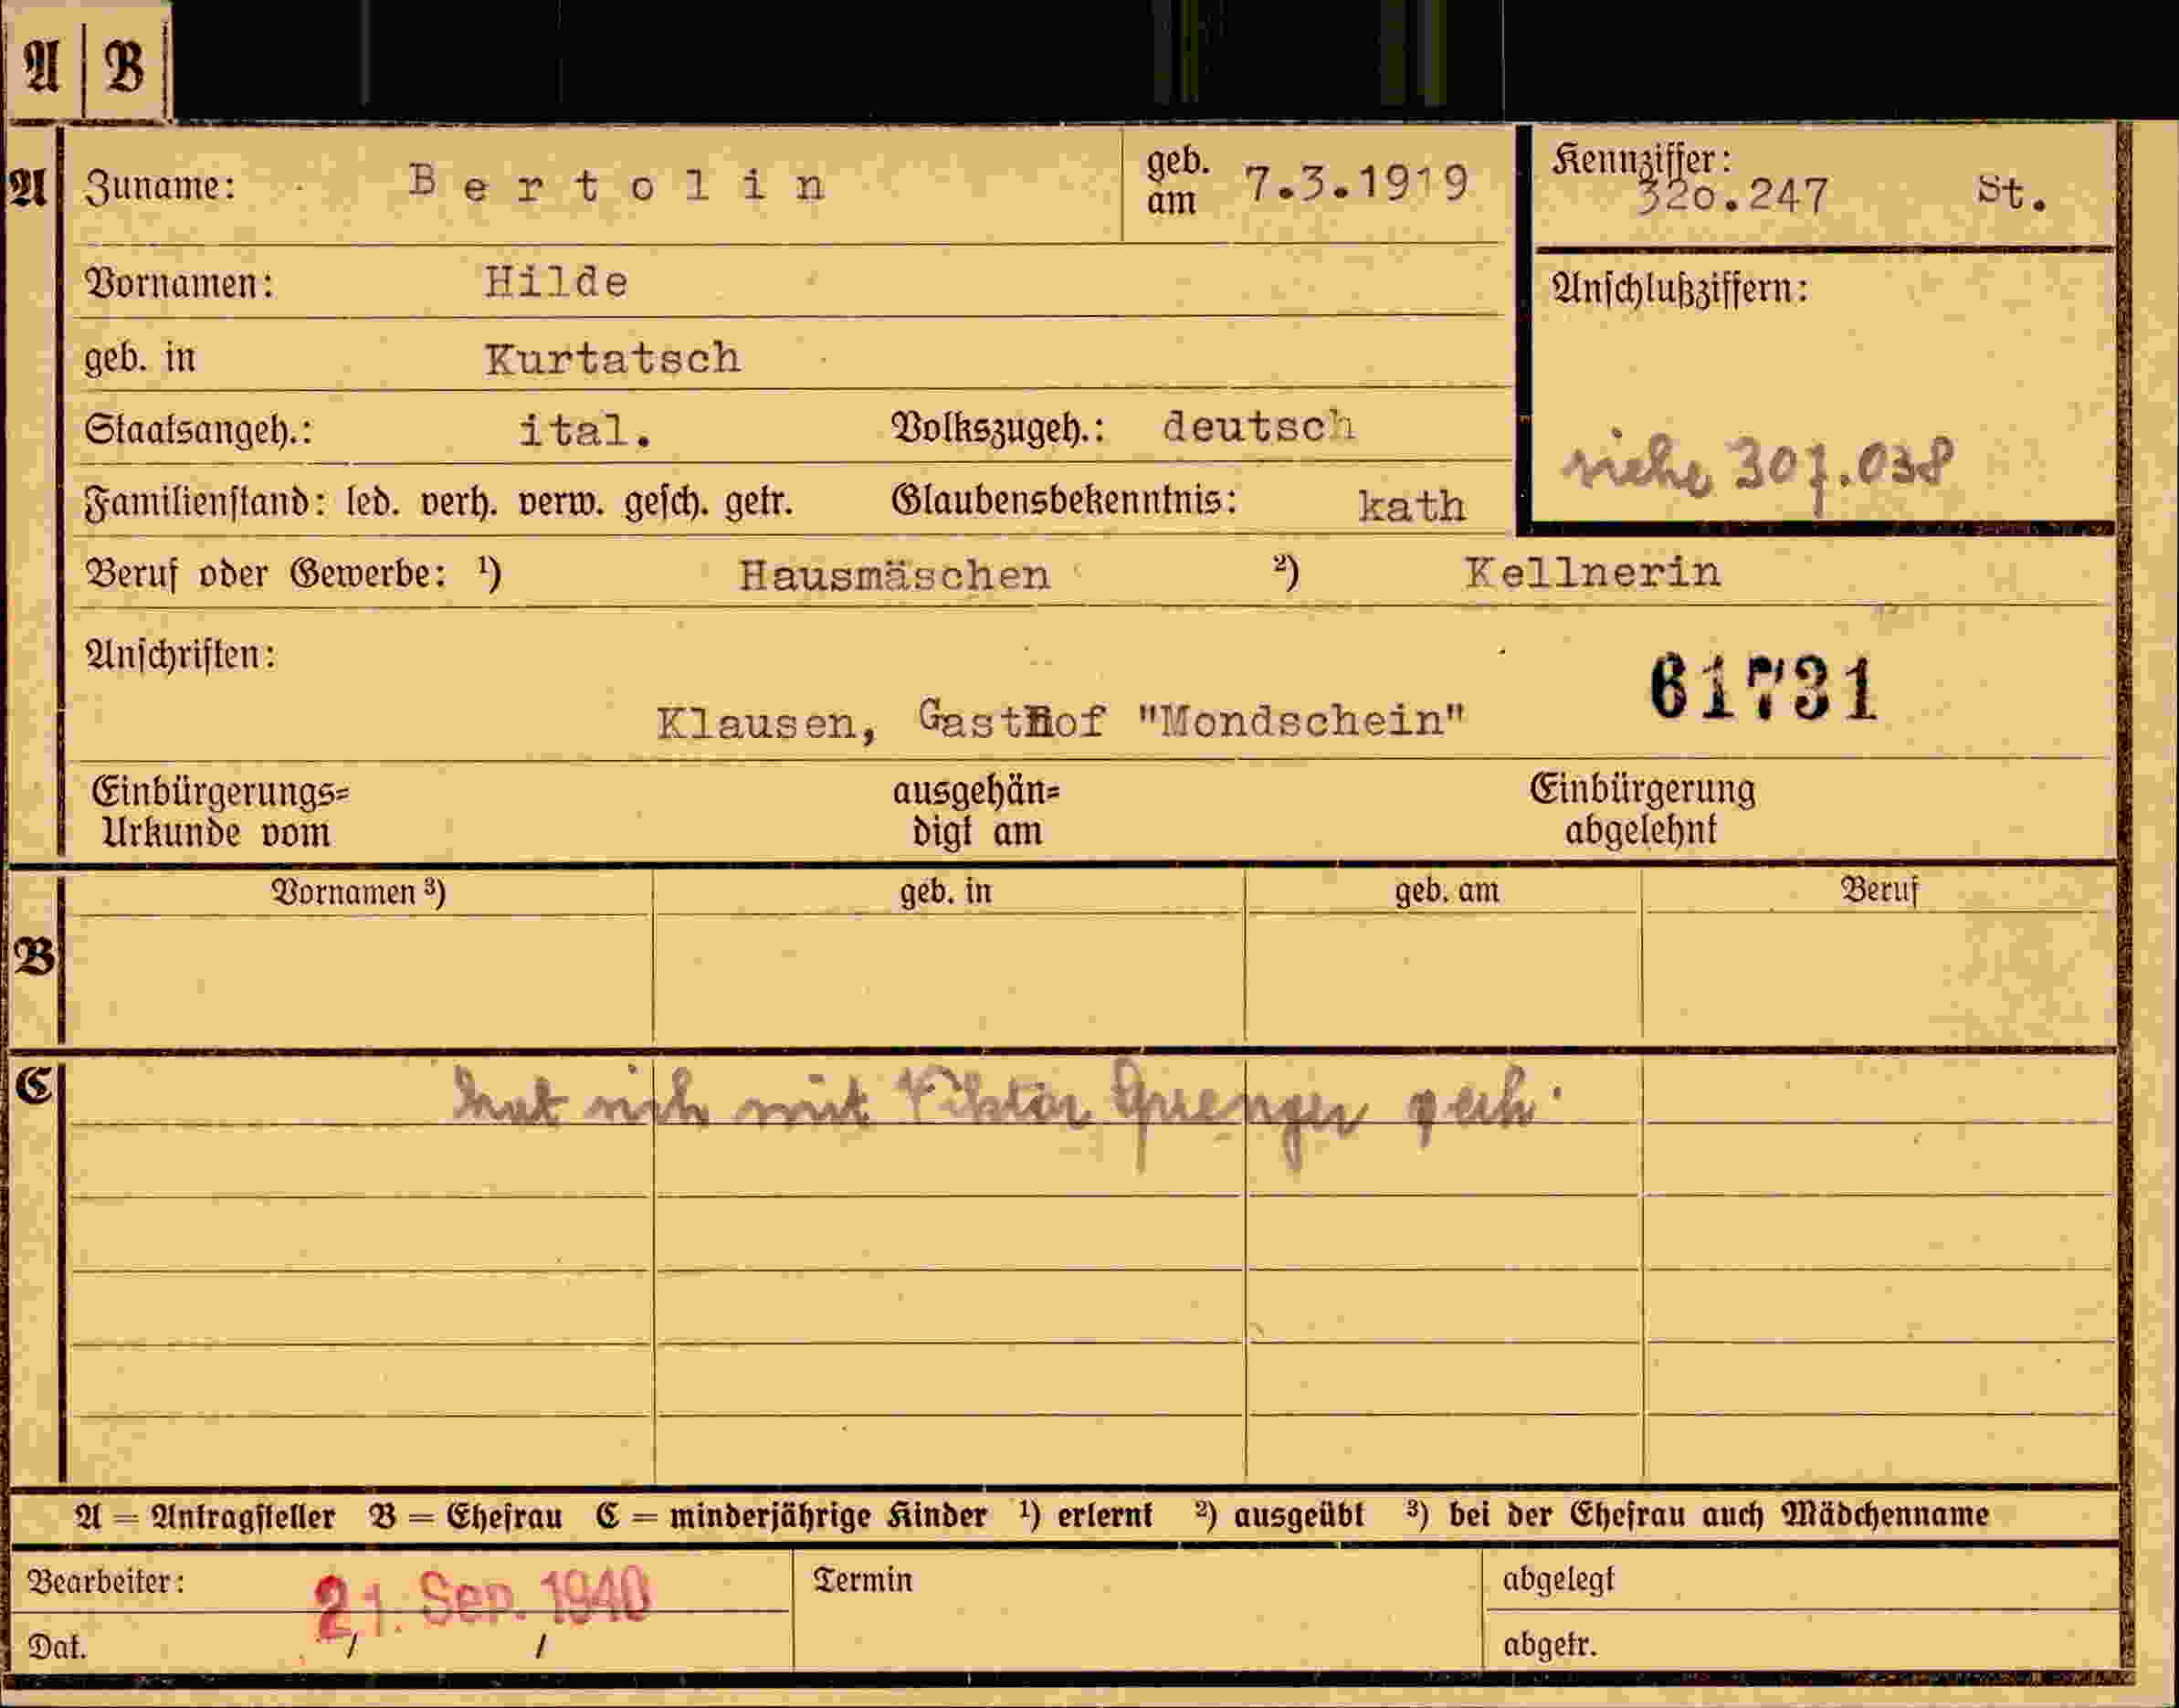 A | B
A Zuname: Bertolin geb. am 7.3.1919 Kennziffer: 320.247 St.
Vornamen: Hilde Anschlußziffern:
geb. in Kurtatsch
Staatsangeh.: ital. Volkszugeh.: deutsch siehe 307.038
Familienstand: led. verh. verw. gesch. getr. Glaubensbekenntnis: kath
Beruf oder Gewerbe: ¹) Hausmäschen ²) Kellnerin
Anschriften: 61731
Klausen, Gasthof "Mondschein"
Einbürgerungs= ausgehän= Einbürgerung
Urkunde vom digt am abgelehnt
Vornamen ³) geb. in geb. am Beruf
B
C hat sich mit Viktor
A = Antragsteller B = Ehefrau C = minderjährige Kinder ¹) erlernt ²) ausgeübt ³) bei der Ehefrau auch Mädchenname
Bearbeiter: 21. Sep. 1940 Termin abgelegt
Dat. / / abgetr.